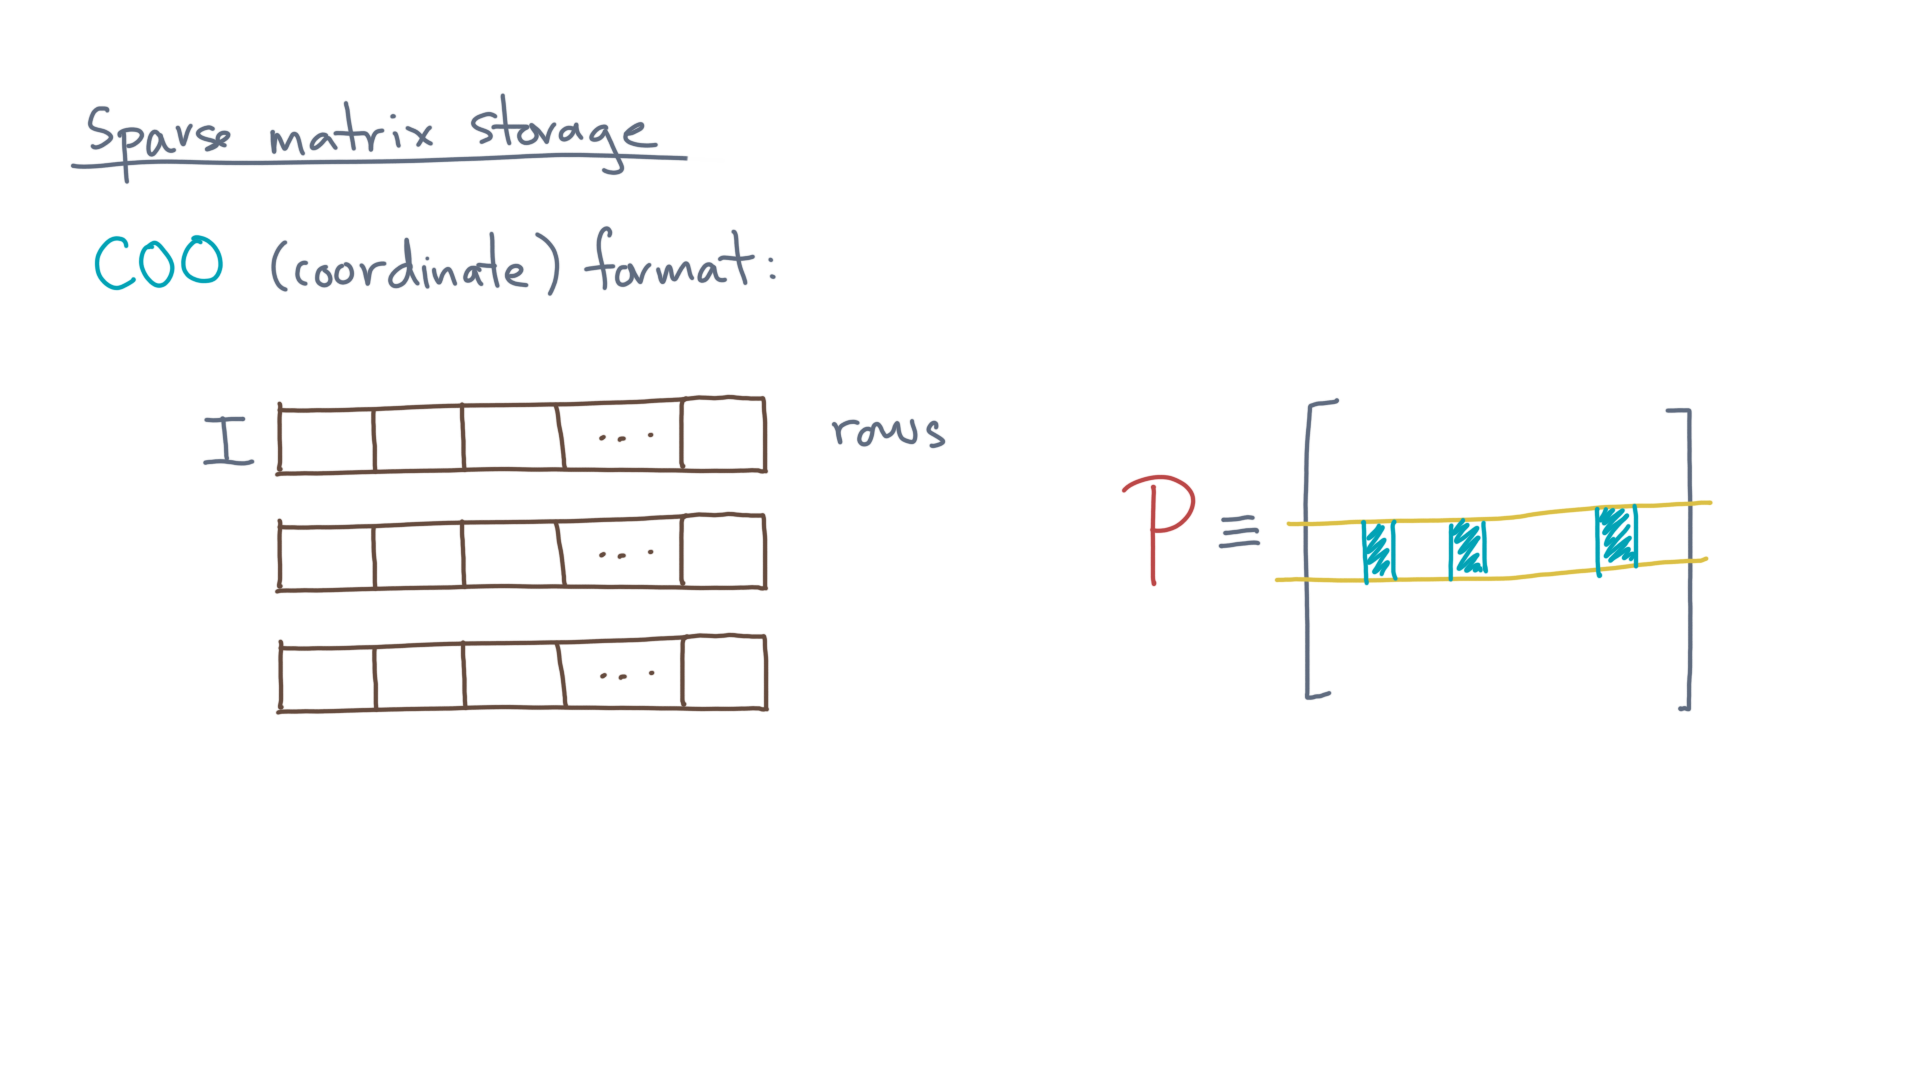 Sparse matrix storage
COO (coordinate) format:
I ... rows
...
...
P ≡